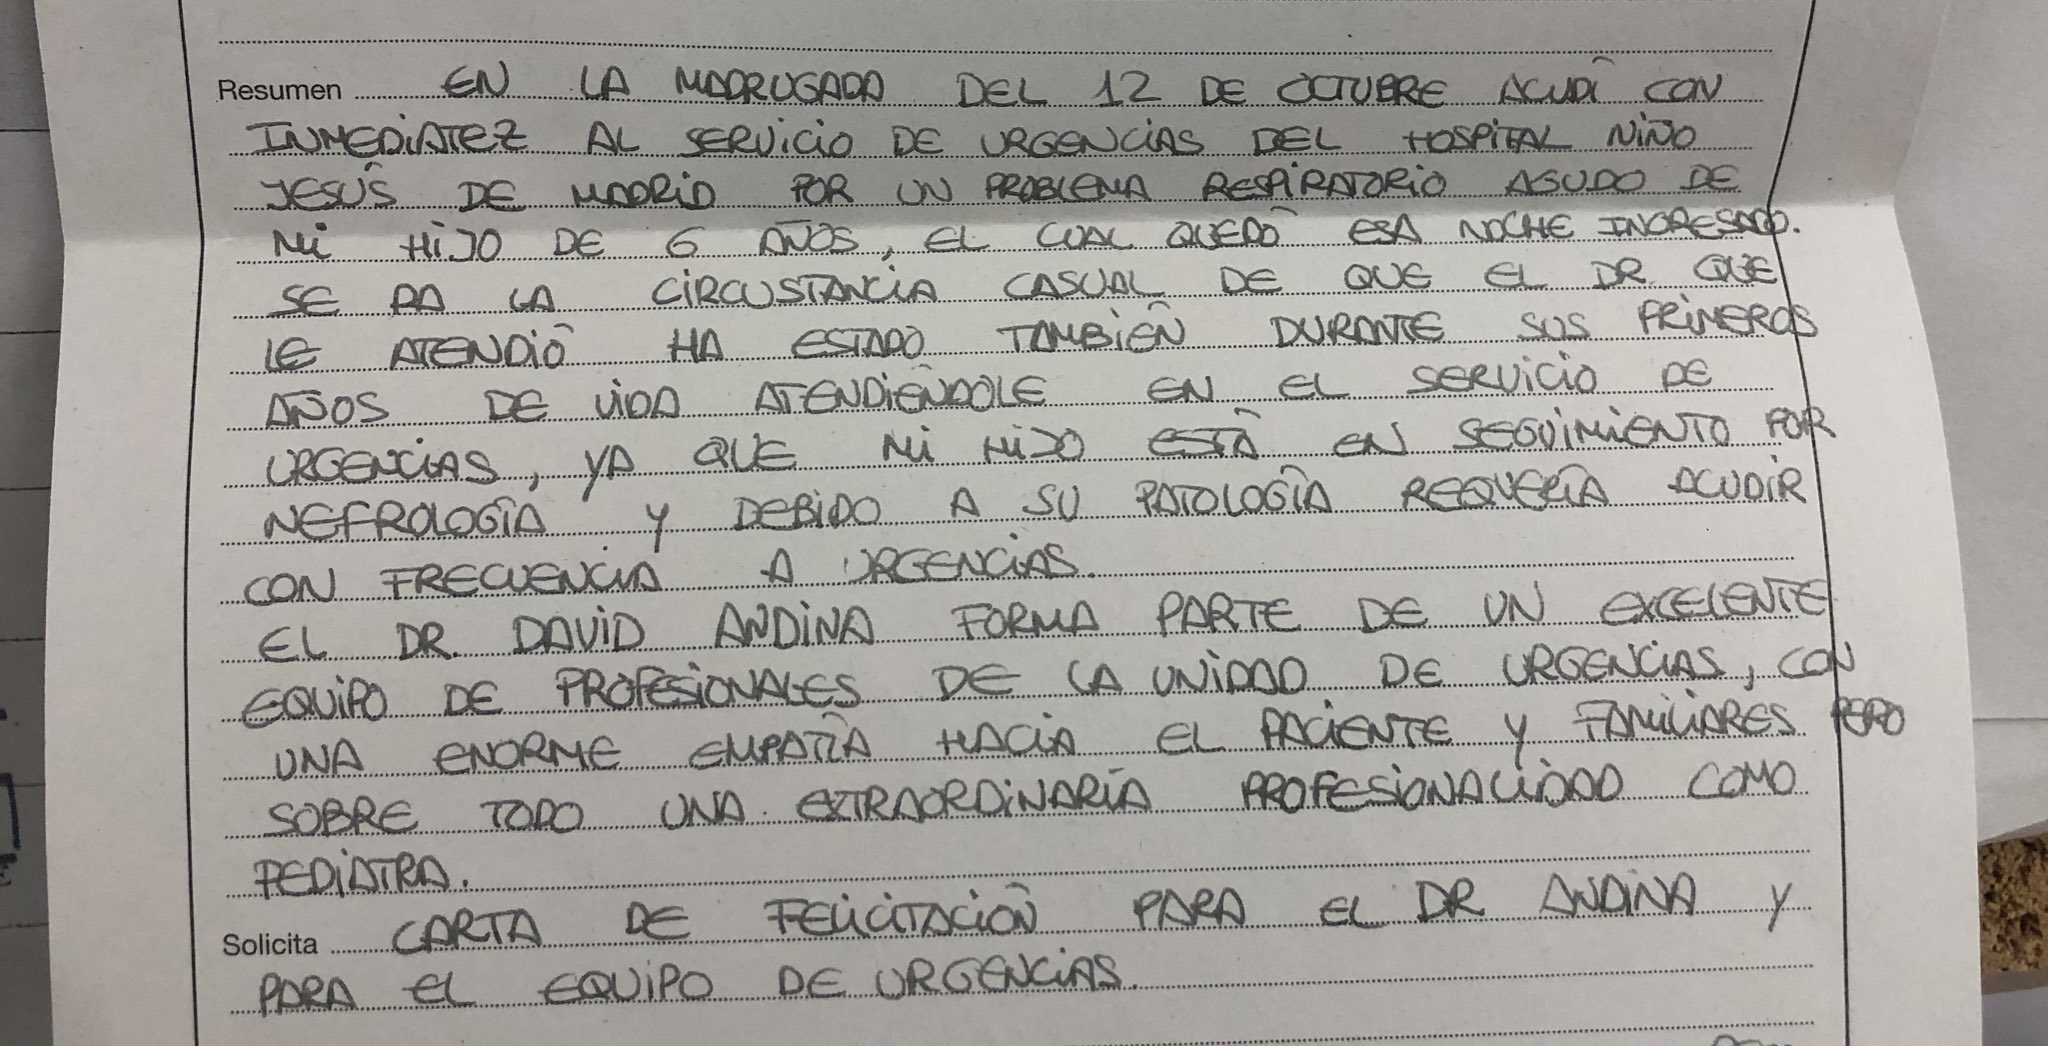 Resumen EN LA MADRUGADA DEL 12 DE OCTUBRE ACUDÍ CON
INMEDIATEZ AL SERVICIO DE URGENCIAS DEL HOSPITAL NIÑO
JESÚS DE MADRID POR UN PROBLEMA RESPIRATORIO AGUDO DE
MI HIJO DE 6 AÑOS, EL CUAL QUEDÓ ESA NOCHE INGRESADO.
SE DA LA CIRCUSTANCIA CASUAL DE QUE EL DR. QUE
LE ATENDIÓ HA ESTADO TAMBIÉN DURANTE SUS PRIMEROS
AÑOS DE VIDA ATENDIÉNDOLE EN EL SERVICIO DE
URGENCIAS, YA QUE MI HIJO ESTÁ EN SEGUIMIENTO POR
NEFROLOGÍA Y DEBIDO A SU PATOLOGÍA REQUERÍA ACUDIR
CON FRECUENCIA A URGENCIAS.
EL DR. DAVID ANDINA FORMA PARTE DE UN EXCELENTE
EQUIPO DE PROFESIONALES DE LA UNIDAD DE URGENCIAS, CON
UNA ENORME EMPATÍA HACIA EL PACIENTE Y FAMILIARES PERO
SOBRE TODO UNA EXTRAORDINARIA PROFESIONALIDAD COMO
PEDIATRA.
Solicita CARTA DE FELICITACIÓN PARA EL DR ANDINA Y
PARA EL EQUIPO DE URGENCIAS.